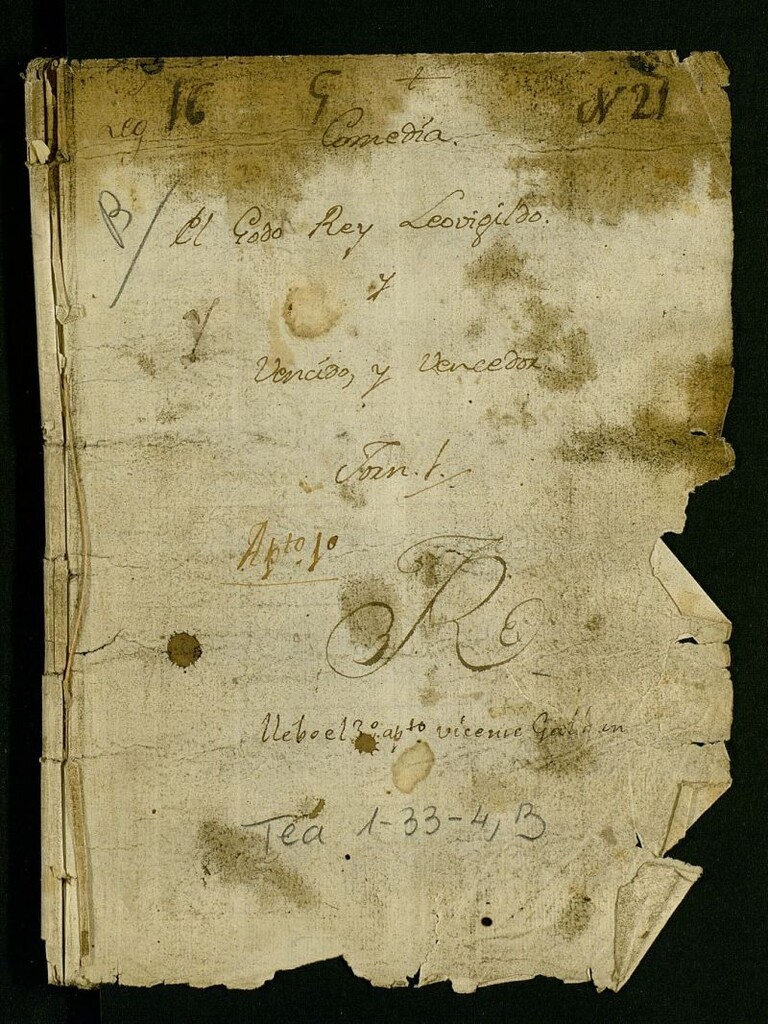 Leg 16 G + N 21
Comedia.
B/
El Godo Rey Leovigildo.
y
Y
Vencido, y Vencedor
Jorn. 1.
Apto. 1o
Re
llebo el 3o. apto vicente Galban
Tea 1-33-4, B